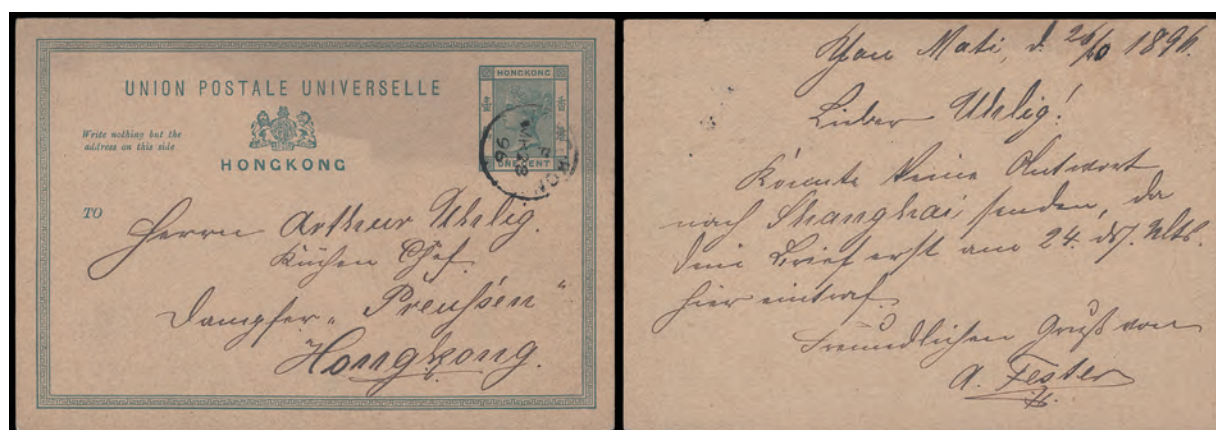 UNION POSTALE UNIVERSELLE
HONGKONG
Write nothing but the
address on this side
HONGKONG
ONE CENT
TO
Herrn Arthur Uhlig.
Küchen Chef.
Dampfer „Preußen“
Hongkong.
96
Mati, d. 26/10 1896.
Lieber Uhlig!
Konnte keine Antwort
nach Shanghai senden, da
Dein Brief erst am 24. ds. Mts.
hier eintraf.
Freundlichen Gruß von
A. Fester